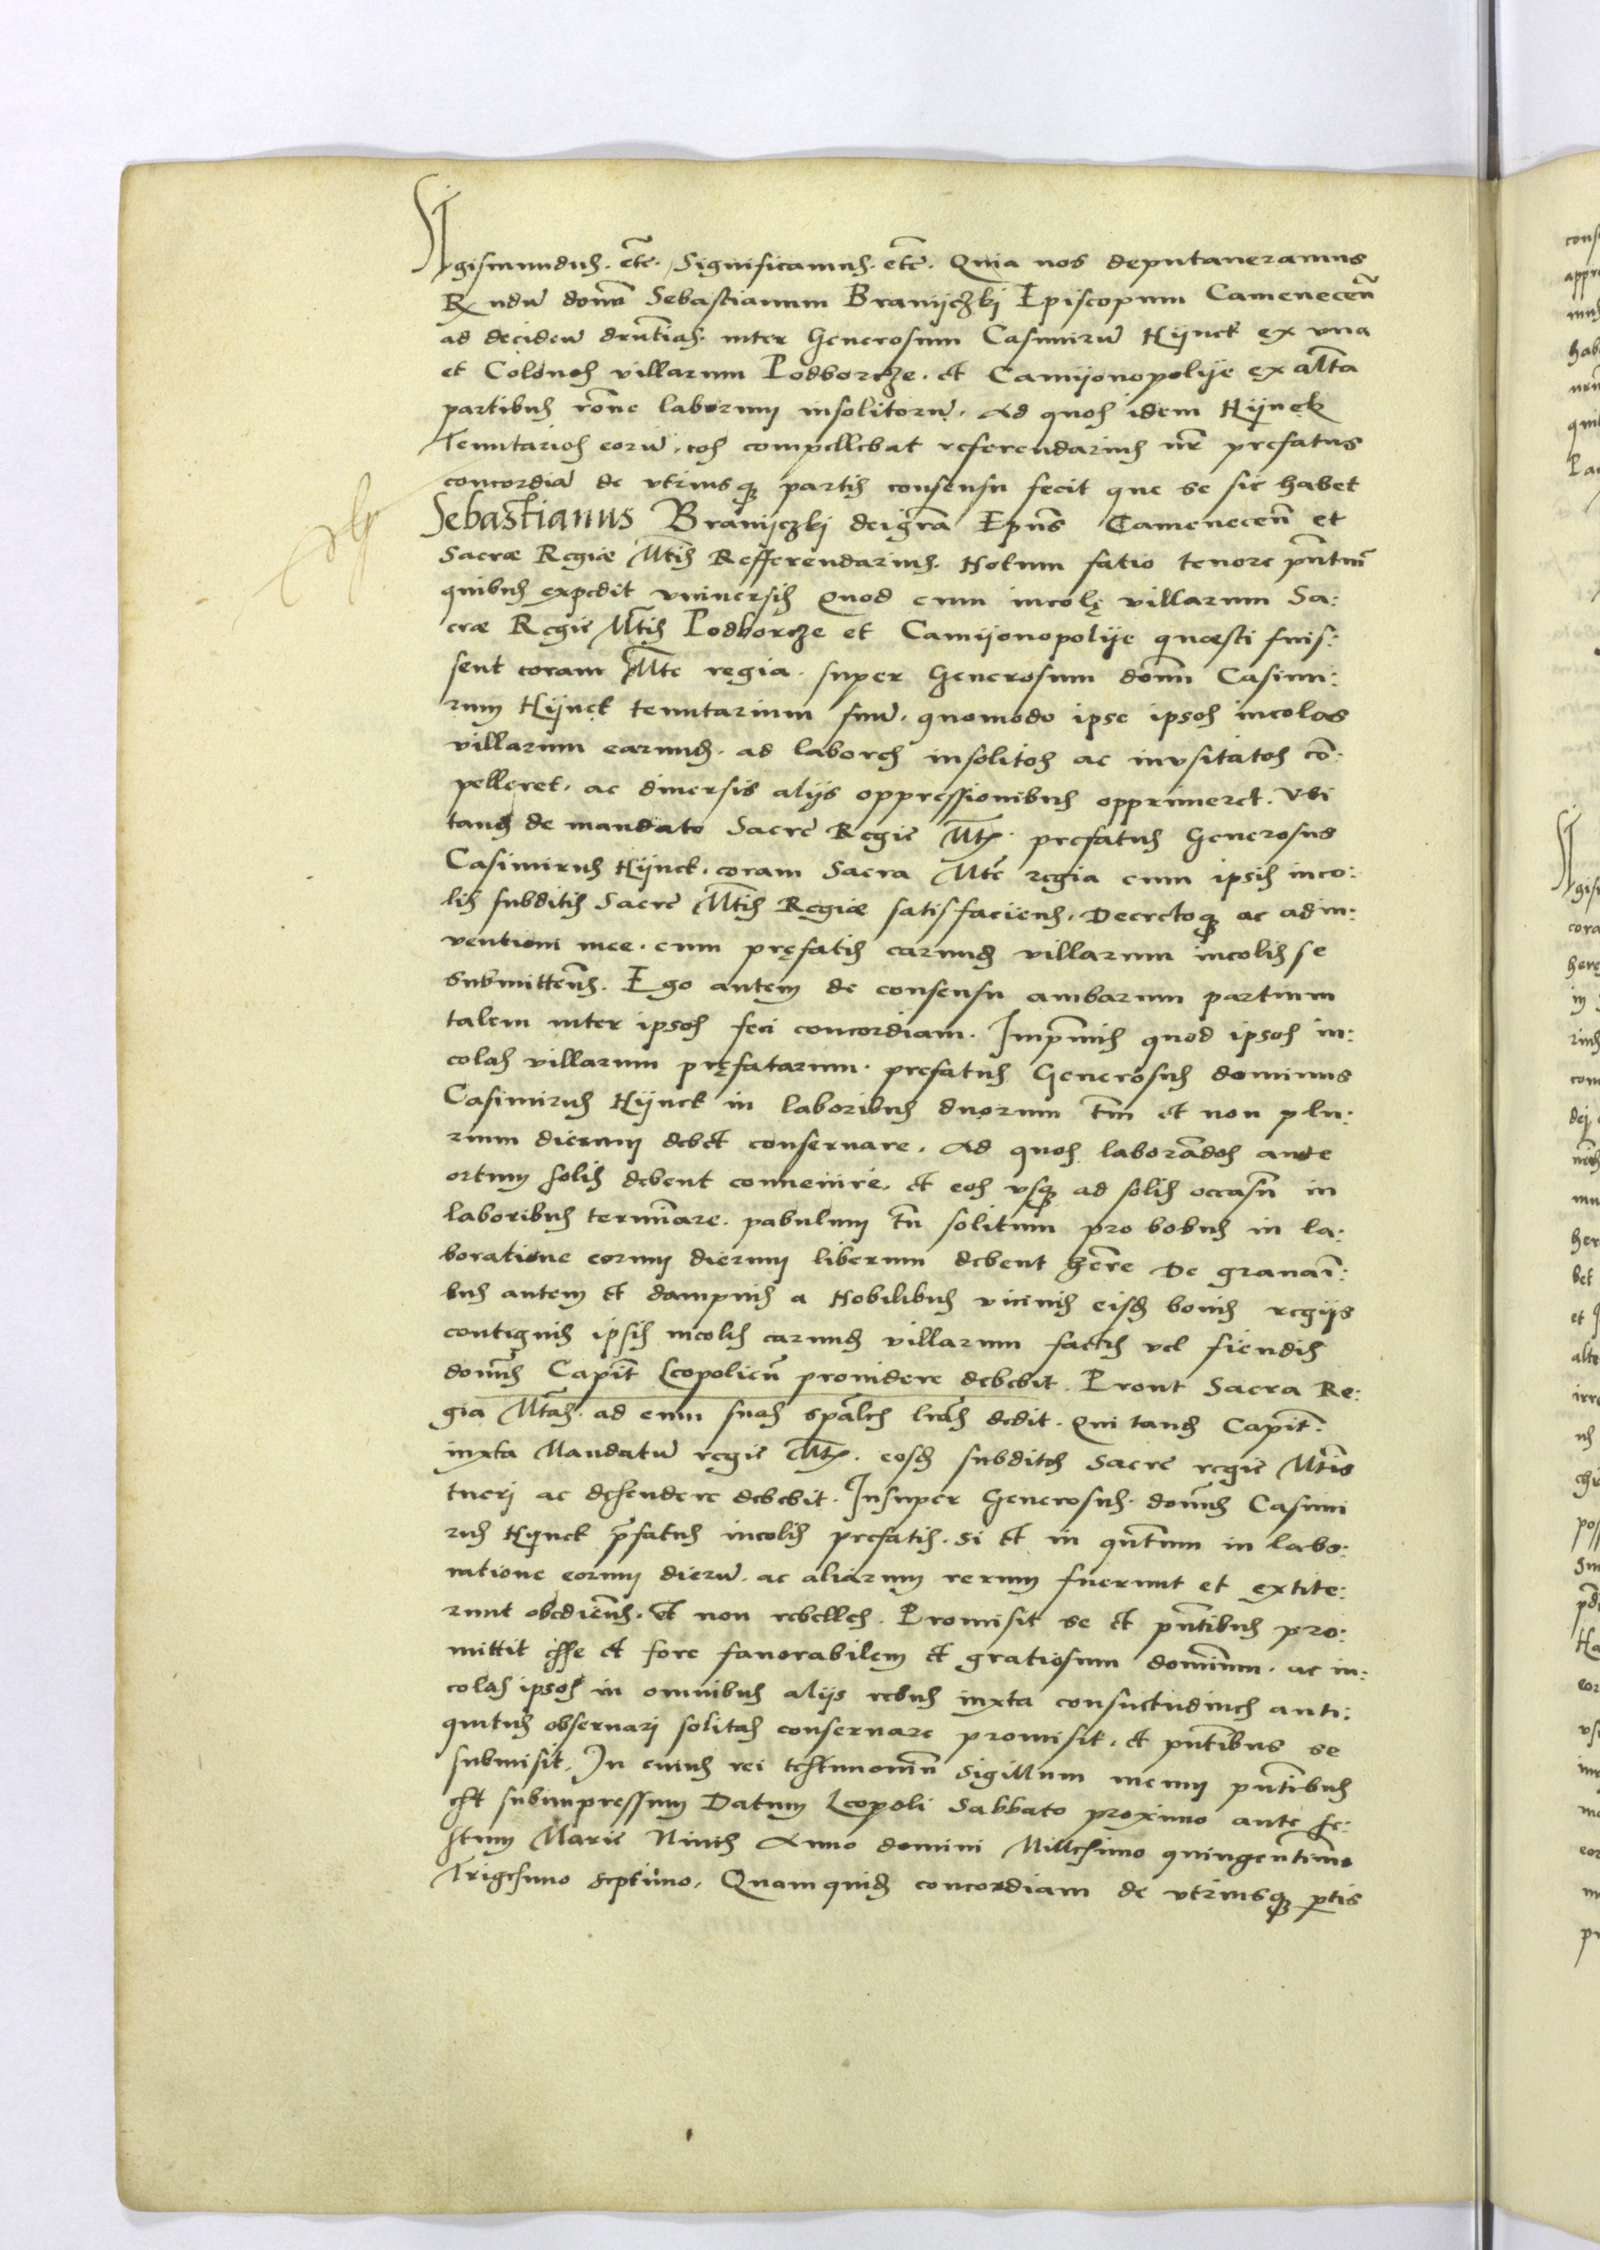 Sigismundus. etc. Significamus. etc. Quia nos deputaueramus
R ndu domn Sebastianum Branijczkj Episcopum Camenecen
ad deciden drentias. inter Generosum Casimiru Hijnek ex vna
et Colonos villarum Podborcze. et Camijonopolije ex altta
partibus rone laborum insolitoru. Ad quos idem Hijnek
Tenutarios eoru. eos compellebat referendarius nr prefatus
concordia de vtriusq partis consensu fecit que se sic habet
Sebastianus Branijczkj dei gra Epus Camenecen et
Sacræ Regiæ Mtis Refferendarius. Notum fatio tenore pntiu
quibus expedit vniuersis Quod cum incolę villarum Sa:
cræ Regie Mtis Podborcze et Camijonopolije quæsti fuis:
sent coram Mte regia. super Generosum domn Casimi:
rum Hijnek tenutarium suu. quomodo ipse ipsos incolas
villarum earund. ad labores insolitos ac invsitatos co:
pelleret. ac diuersis alijs oppressionibus opprimeret. Vbi
tand de mandato Sacre Regie Mtis. prefatus Generosus
Casimirus Hijnek. coram Sacra Mte regia cum ipsis inco:
lis subditis Sacre Mtis Regiæ satisfaciens. Decretoq ac adin:
ventioni mee. cum pręfatis earund villarum incolis se
submittens. Ego autem de consensu ambarum partium
talem inter ipsos feci concordiam. Inprimis quod ipsos in:
colas villarum pręfatarum. prefatus Generosus dominus
Casimirus Hijnek in laboribus duorum tm et non plu:
rium dierum debet conseruare. Ad quos laborados ante
ortum solis debent conuenire. et eos vsq ad solis occasu in
laboribus terminare. pabulum tn solitum pro bobus in la:
boratione eorum dierum liberum debent here De grauai:
bus autem et dampnis a Nobilibus vicinis eisd bonis regijs
contiguis ipsis incolis earund villarum factis vel fiendis
domns Capit Leopolien prouidere debebit. Prout Sacra Re:
gia Mtas. ad eum suas spales lras dedit. Qui tand Capit:
iuxta Mandatu regie Mtis. eosd subditos Sacre regie Mtis
tuerj ac defendere debebit. Insuper Generosus. domns Casimi
rus Hijnek pfatus incolis prefatis. si et in qntum in labo:
ratione eorum dieru. ac aliarum rerum fuerunt et extite:
runt obediens. et non rebelles. Promisit se et pntibus pro:
mittit esse et fore fauorabilem et gratiosum dominum. ac in:
colas ipsos in omnibus alijs rebus iuxta consuetudines anti:
quitus obseruarj solitas conseruare promisit. et pntibus se
submisit. In cuius rei testimoniu Sigillum meum pntibus
est subimpressum Datum Leopoli Sabbato proximo ante fe:
stum Marie Niuis Anno domini Millesimo quingentimo
Trigesimo septimo. Quamquid concordiam de vtriusq ptis